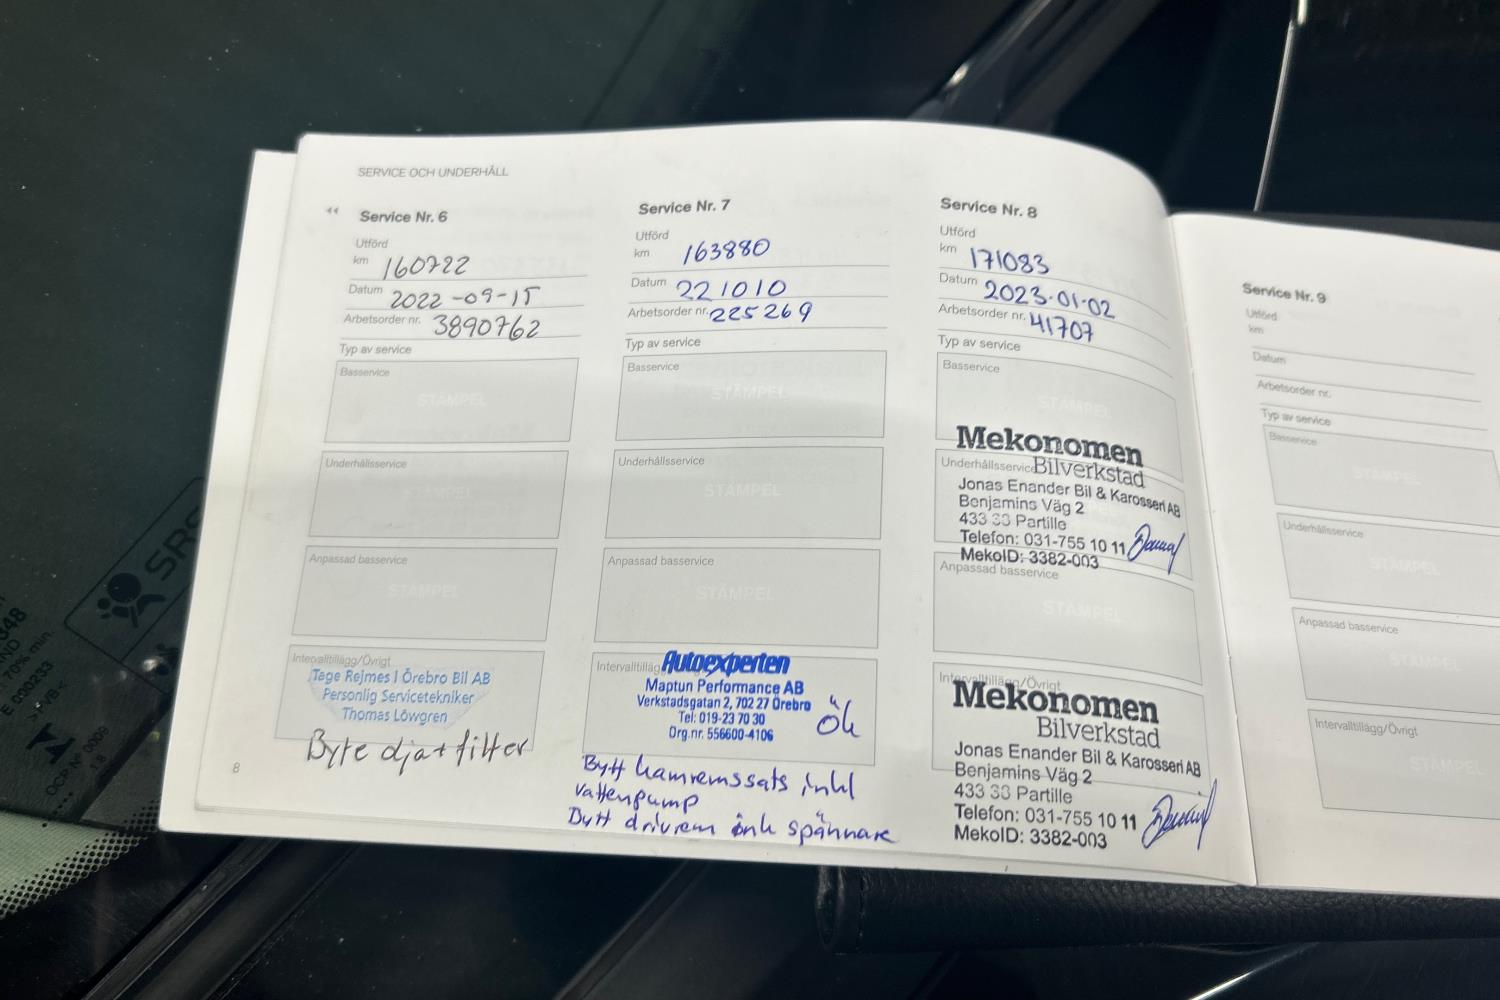 SERVICE OCH UNDERHÅLL
Service Nr. 6
Utförd
km 160722
Datum 2022-09-15
Arbetsorder nr. 3890762
Typ av service
Basservice
STÄMPEL
Underhållsservice
STÄMPEL
Anpassad basservice
STÄMPEL
Intervalltillägg/Övrigt
Tage Rejmes I Örebro Bil AB
Personlig Servicetekniker
Thomas Löwgren
Byte olja + filter
8
Service Nr. 7
Utförd
km 163880
Datum 221010
Arbetsorder nr. 225269
Typ av service
Basservice
STÄMPEL
Underhållsservice
STÄMPEL
Anpassad basservice
STÄMPEL
Intervalltillägg
Autoexperten
Maptun Performance AB
Verkstadsgatan 2, 702 27 Örebro
Tel: 019-23 70 30
Org.nr. 556600-4106
ök
Bytt kamremssats inkl
vattenpump
Bytt drivrem ink spännare
Service Nr. 8
Utförd
km 171083
Datum 2023-01-02
Arbetsorder nr. 41707
Typ av service
Basservice
STÄMPEL
Mekonomen
Underhållsservice Bilverkstad
Jonas Enander Bil & Karosseri AB
Benjamins Väg 2
433 33 Partille
Telefon: 031-755 10 11
MekoID: 3382-003
Anpassad basservice
STÄMPEL
Intervalltillägg/Övrigt
Mekonomen
Bilverkstad
Jonas Enander Bil & Karosseri AB
Benjamins Väg 2
433 33 Partille
Telefon: 031-755 10 11
MekoID: 3382-003
Service Nr. 9
Utförd
km
Datum
Arbetsorder nr.
Typ av service
Basservice
STÄMPEL
Underhållsservice
STÄMPEL
Anpassad basservice
STÄMPEL
Intervalltillägg/Övrigt
STÄMPEL
SRS
70% min.
E 000233
OCP Nº 0009